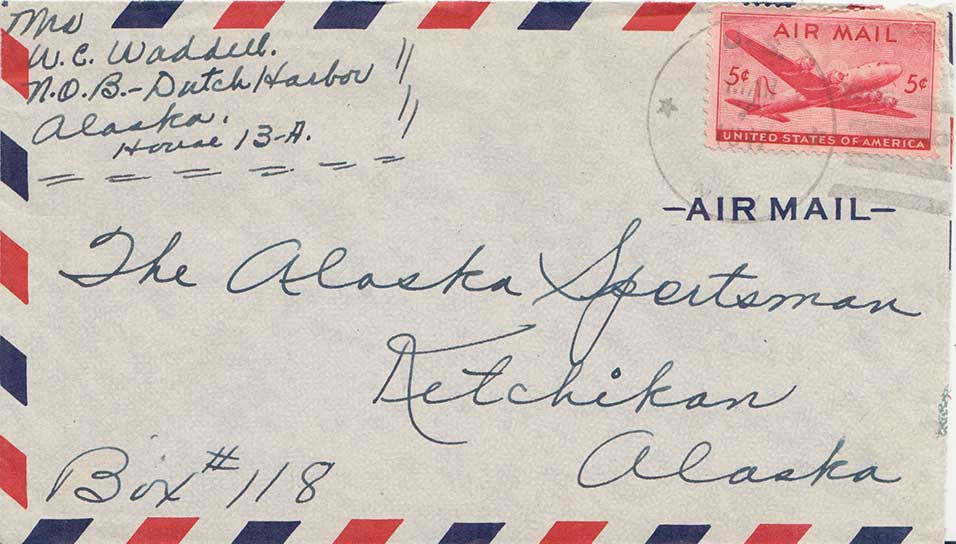 Mrs
W.C. Waddell.
N.O.B.-Dutch Harbor "
Alaska. "
House 13-A.
AIR MAIL
5¢ 5¢
UNITED STATES OF AMERICA
-AIR MAIL-
The Alaska Sportsman
Ketchikan
Alaska
Box #118